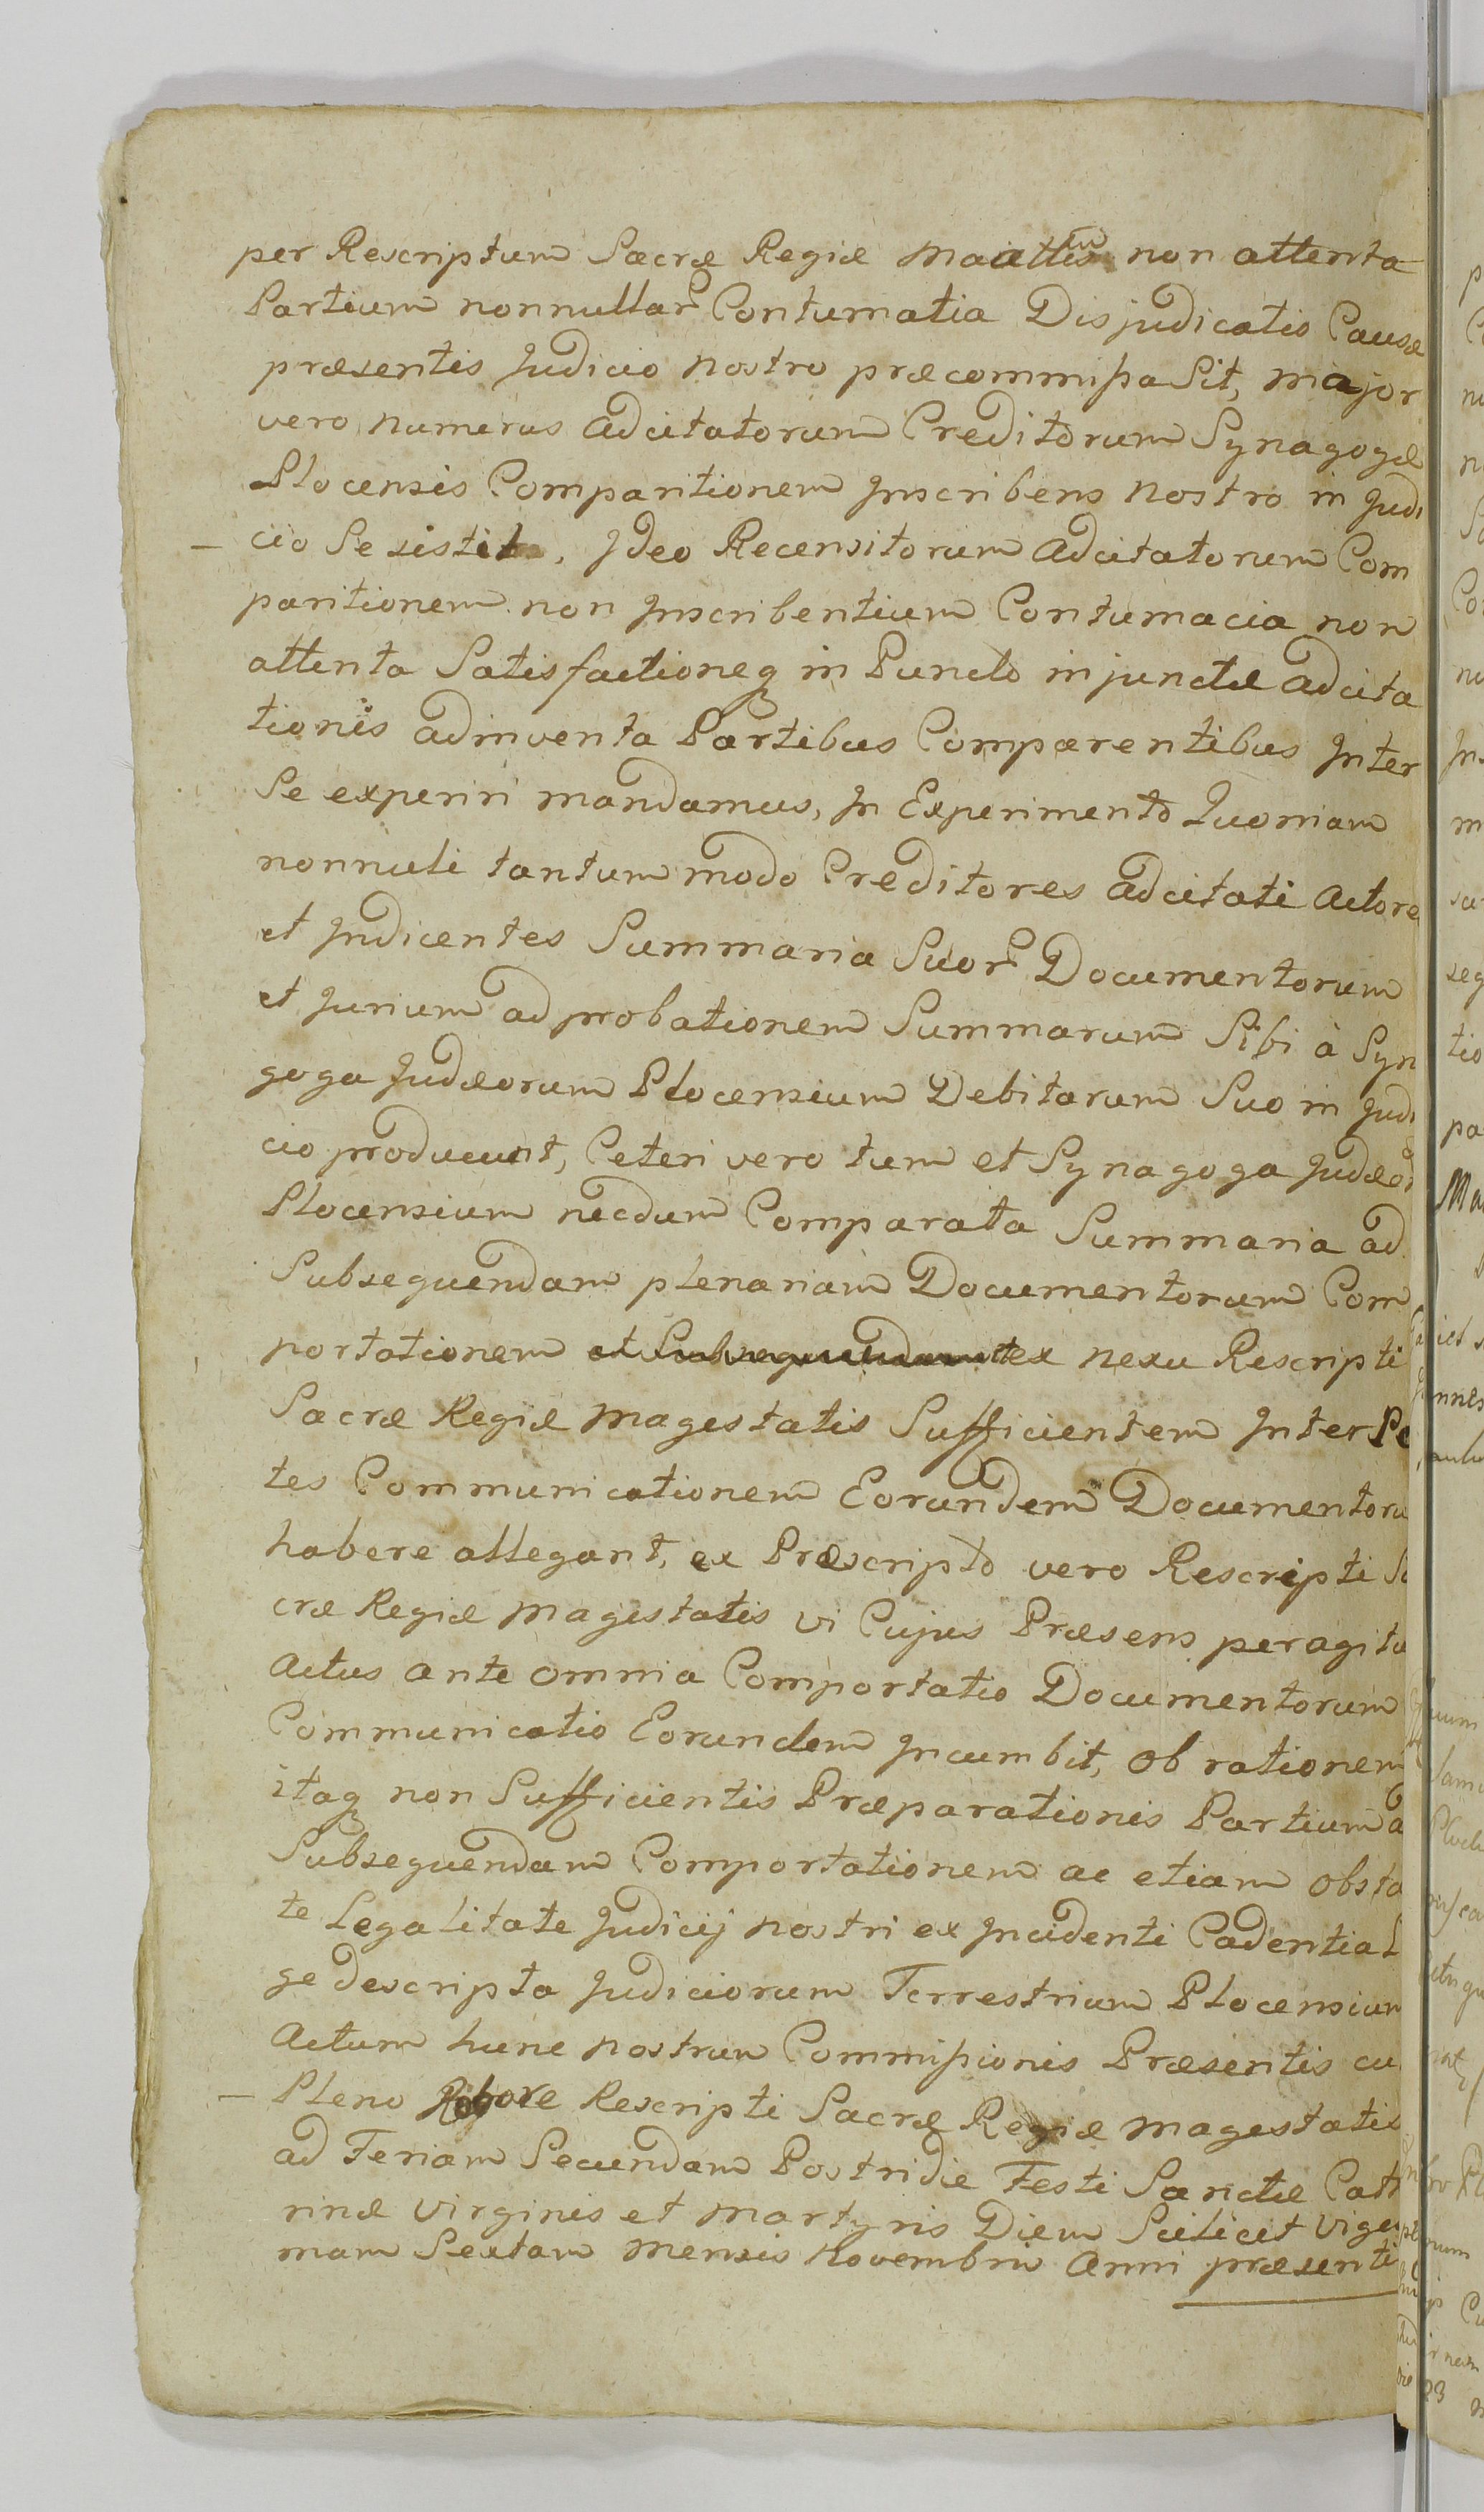 per Rescriptum Sacræ Regiæ Maiattis non attenta
Partium nonnullar Contumatia Disjudicatio Causæ
præsentis Judicio nostro præcommissa Sit, major
vero numerus adcitatorum Creditorum Synagogæ
Plocensis Comparitionem Inscribens nostro in Judi
cio Se sistit, Ideo Recensitorum adcitatorum Com
paritionem non Inscribentium Contumacia non
attenta Satisfactioneq in Puncto injunctæ adcita
tionis adinventa Partibus Comparentibus Inter
Se experiri mandamus, In Experimento Quoniam
nonnuli tantum modo Creditores adcitati Actore
et Indicentes Summaria Suor Documentorum
et Jurium ad probationem Summarum Sibi à Syn
goga Judæorum Plocensium Debitarum Suo in Judi
cio producunt, Ceteri vero tum et Synagoga Judæor
Plocensium necdum Comparata Summaria ad
Subsequendam plenariam Documentorum Com
portationem et Subsequendam ex nexu Rescripti
Sacræ Regiæ Magestatis Sufficientem Inter Pa
tes Communicationem Eorundem Documentoru
habere allegant, ex Præscripto vero Rescripti Sa
cræ Regiæ Magestatis vi Cujus Præsens peragitu
Actus ante omnia Comportatio Documentorum
Communicatio Eorundem Incumbit, Ob rationem
itaq non Sufficientis Præparationis Partium a
Subsequendam Comportationem ac etiam obsta
te Legalitate Judicij nostri ex Incidenti Cadentia L
ge descripta Judiciorum Terrestrium Plocensium
Actum hunc nostrum Commissionis Præsentis cu
Pleno Robore Rescripti Sacræ Regiæ Magestatis
ad Feriam Secundam Postridie Festi Sanctæ Cath
rinæ Virginis et Martyris Diem Scilicet Vigesi
mam Sextam Mensis Novembris Anni præsenti